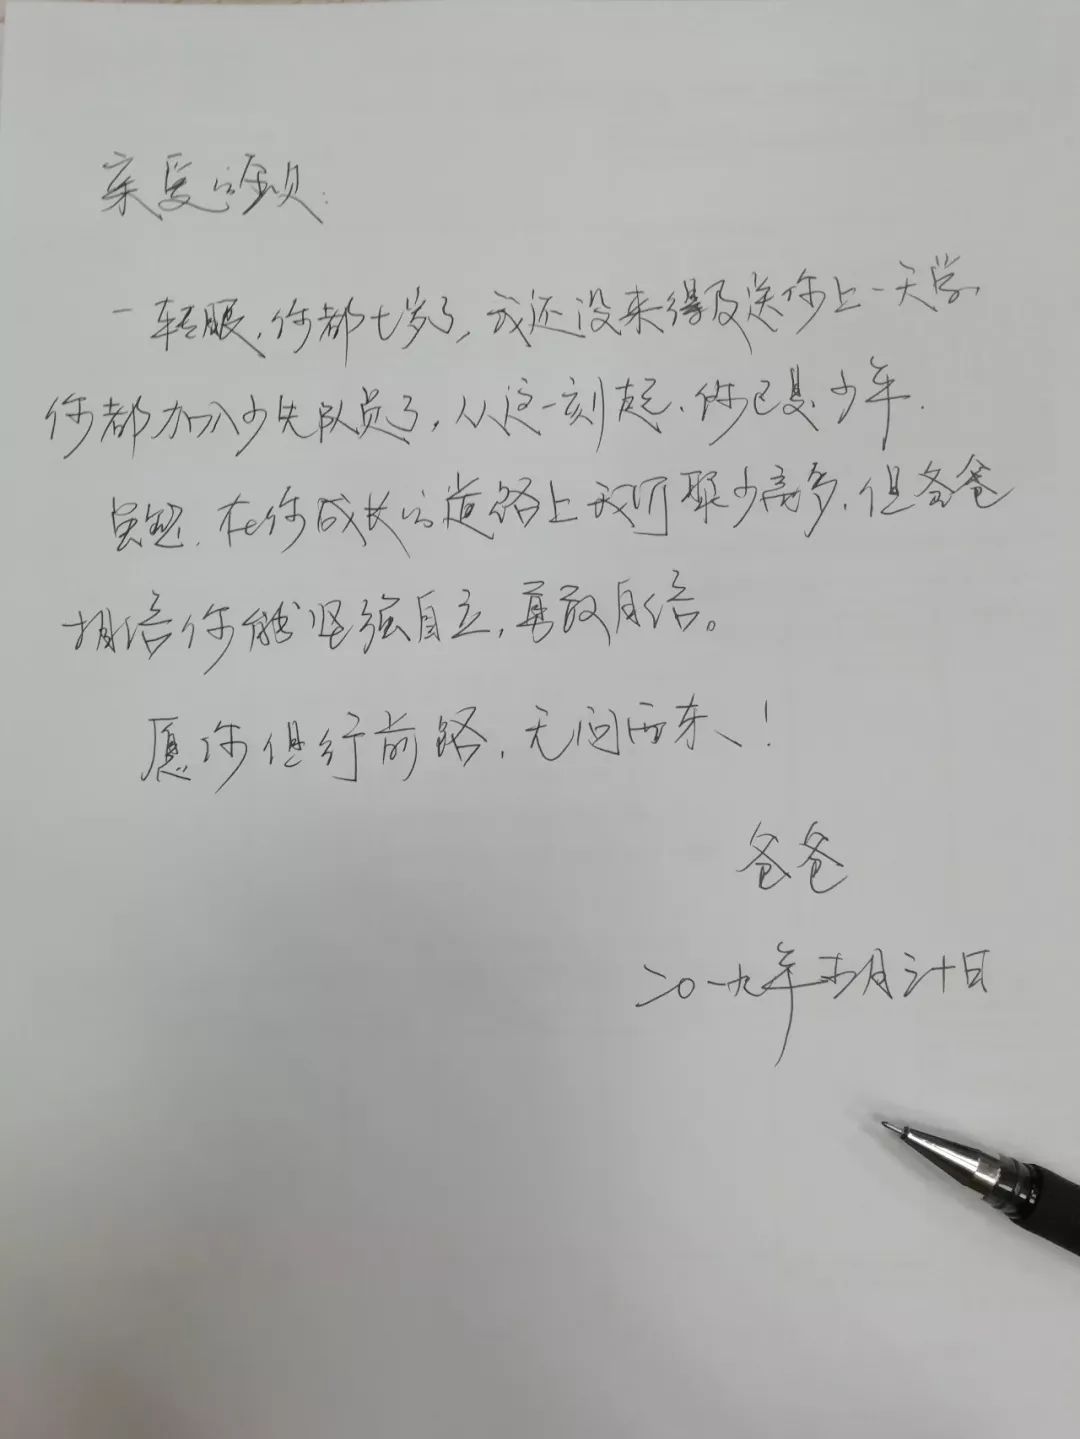 亲爱的宝贝：
一转眼，你都七岁了，我还没来得及送你上一天学，
你都加入少先队员了，从这一刻起，你已是少年。
虽然，在你成长的道路上我们聚少离多，但爸爸
相信你能坚强自立，勇敢自信。
愿你但行前路，无问西东！
爸爸
二〇一九年 月三十日